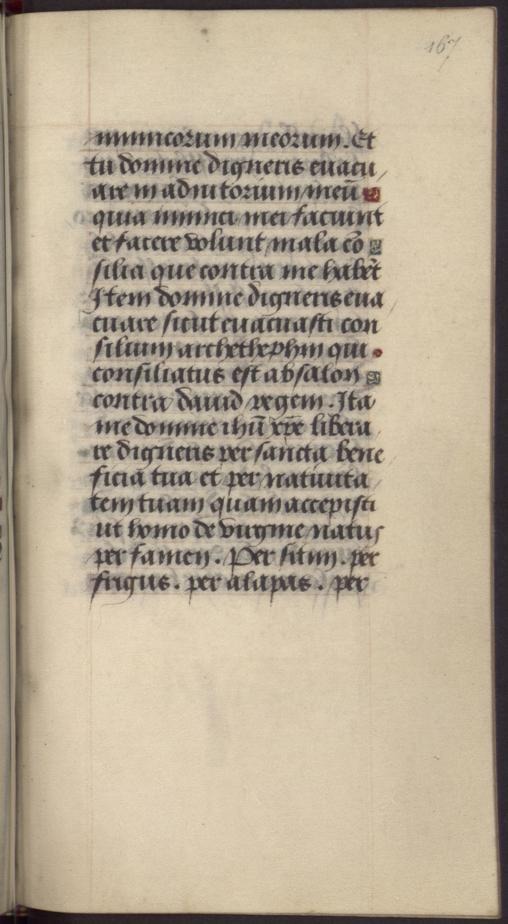 167
inimicorum meorum. Et
tu domine digneris euacu
are in adiutorium meū
quia inimici mei faciunt
et facere volunt mala cō
silia que contra me habēt
Item domine digneris eua
cuare sicut euacuasti con
silium archethephin qui
consiliatus est absalon
contra dauid regem. Ita
me domine ihū xp̄e libera
re digneris per sancta bene
ficia tua et per natiuita
tem tuam quam accepisti
ut homo de virgine natus
per famen. Per sitim. per
frigus. per alapas. per